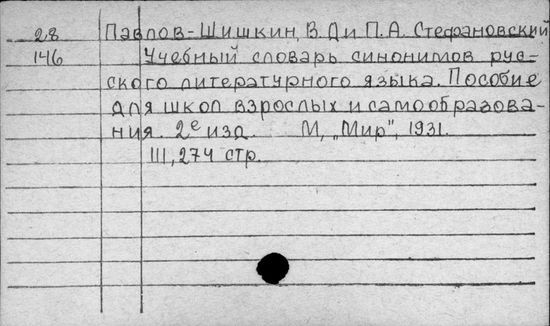 28 Павлов-Шишкин, В. Д и П. А. Стефановский
146 Учебный словарь синонимов рус-
ского литературного языка. Пособие
для школ взрослых и самообразова-
ния. 2е изд. М, „Мир", 1931.
III, 274 стр.